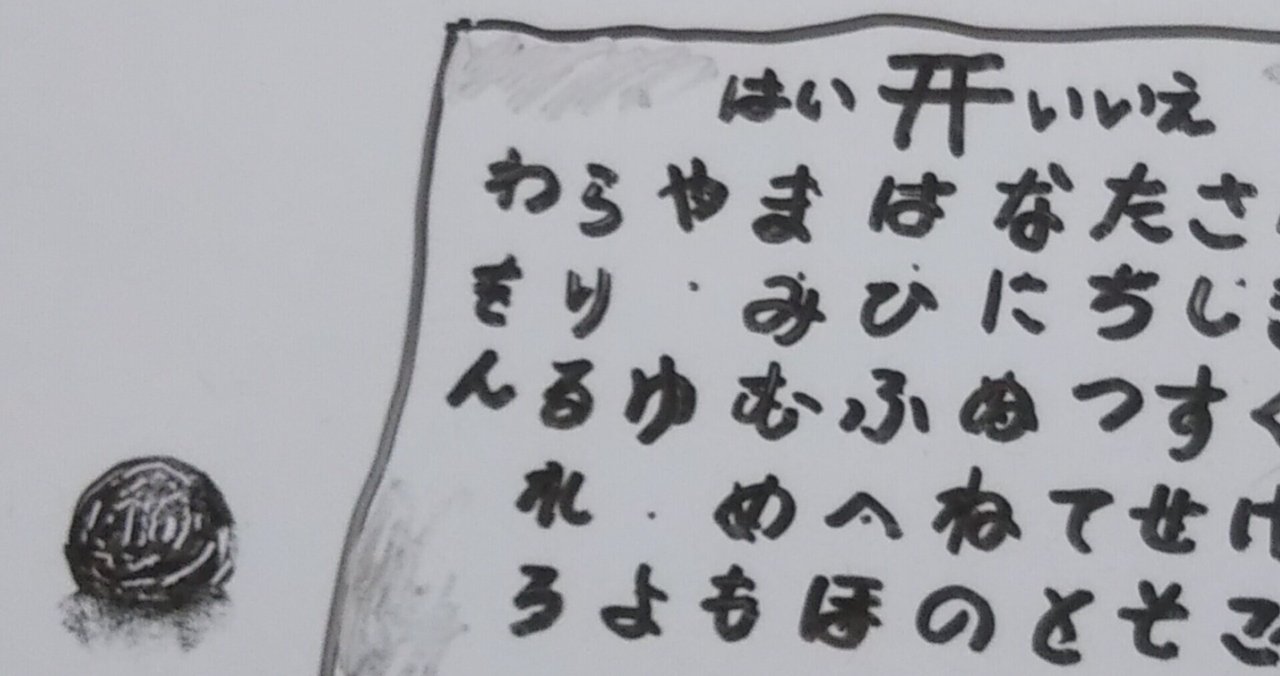 はい 开 いいえ
わ ら や ま は な た さ
を り ・ み ひ に ち し
ん る ゆ む ふ ぬ つ す く
れ ・ め へ ね て せ け
ろ よ も ほ の と そ こ
10